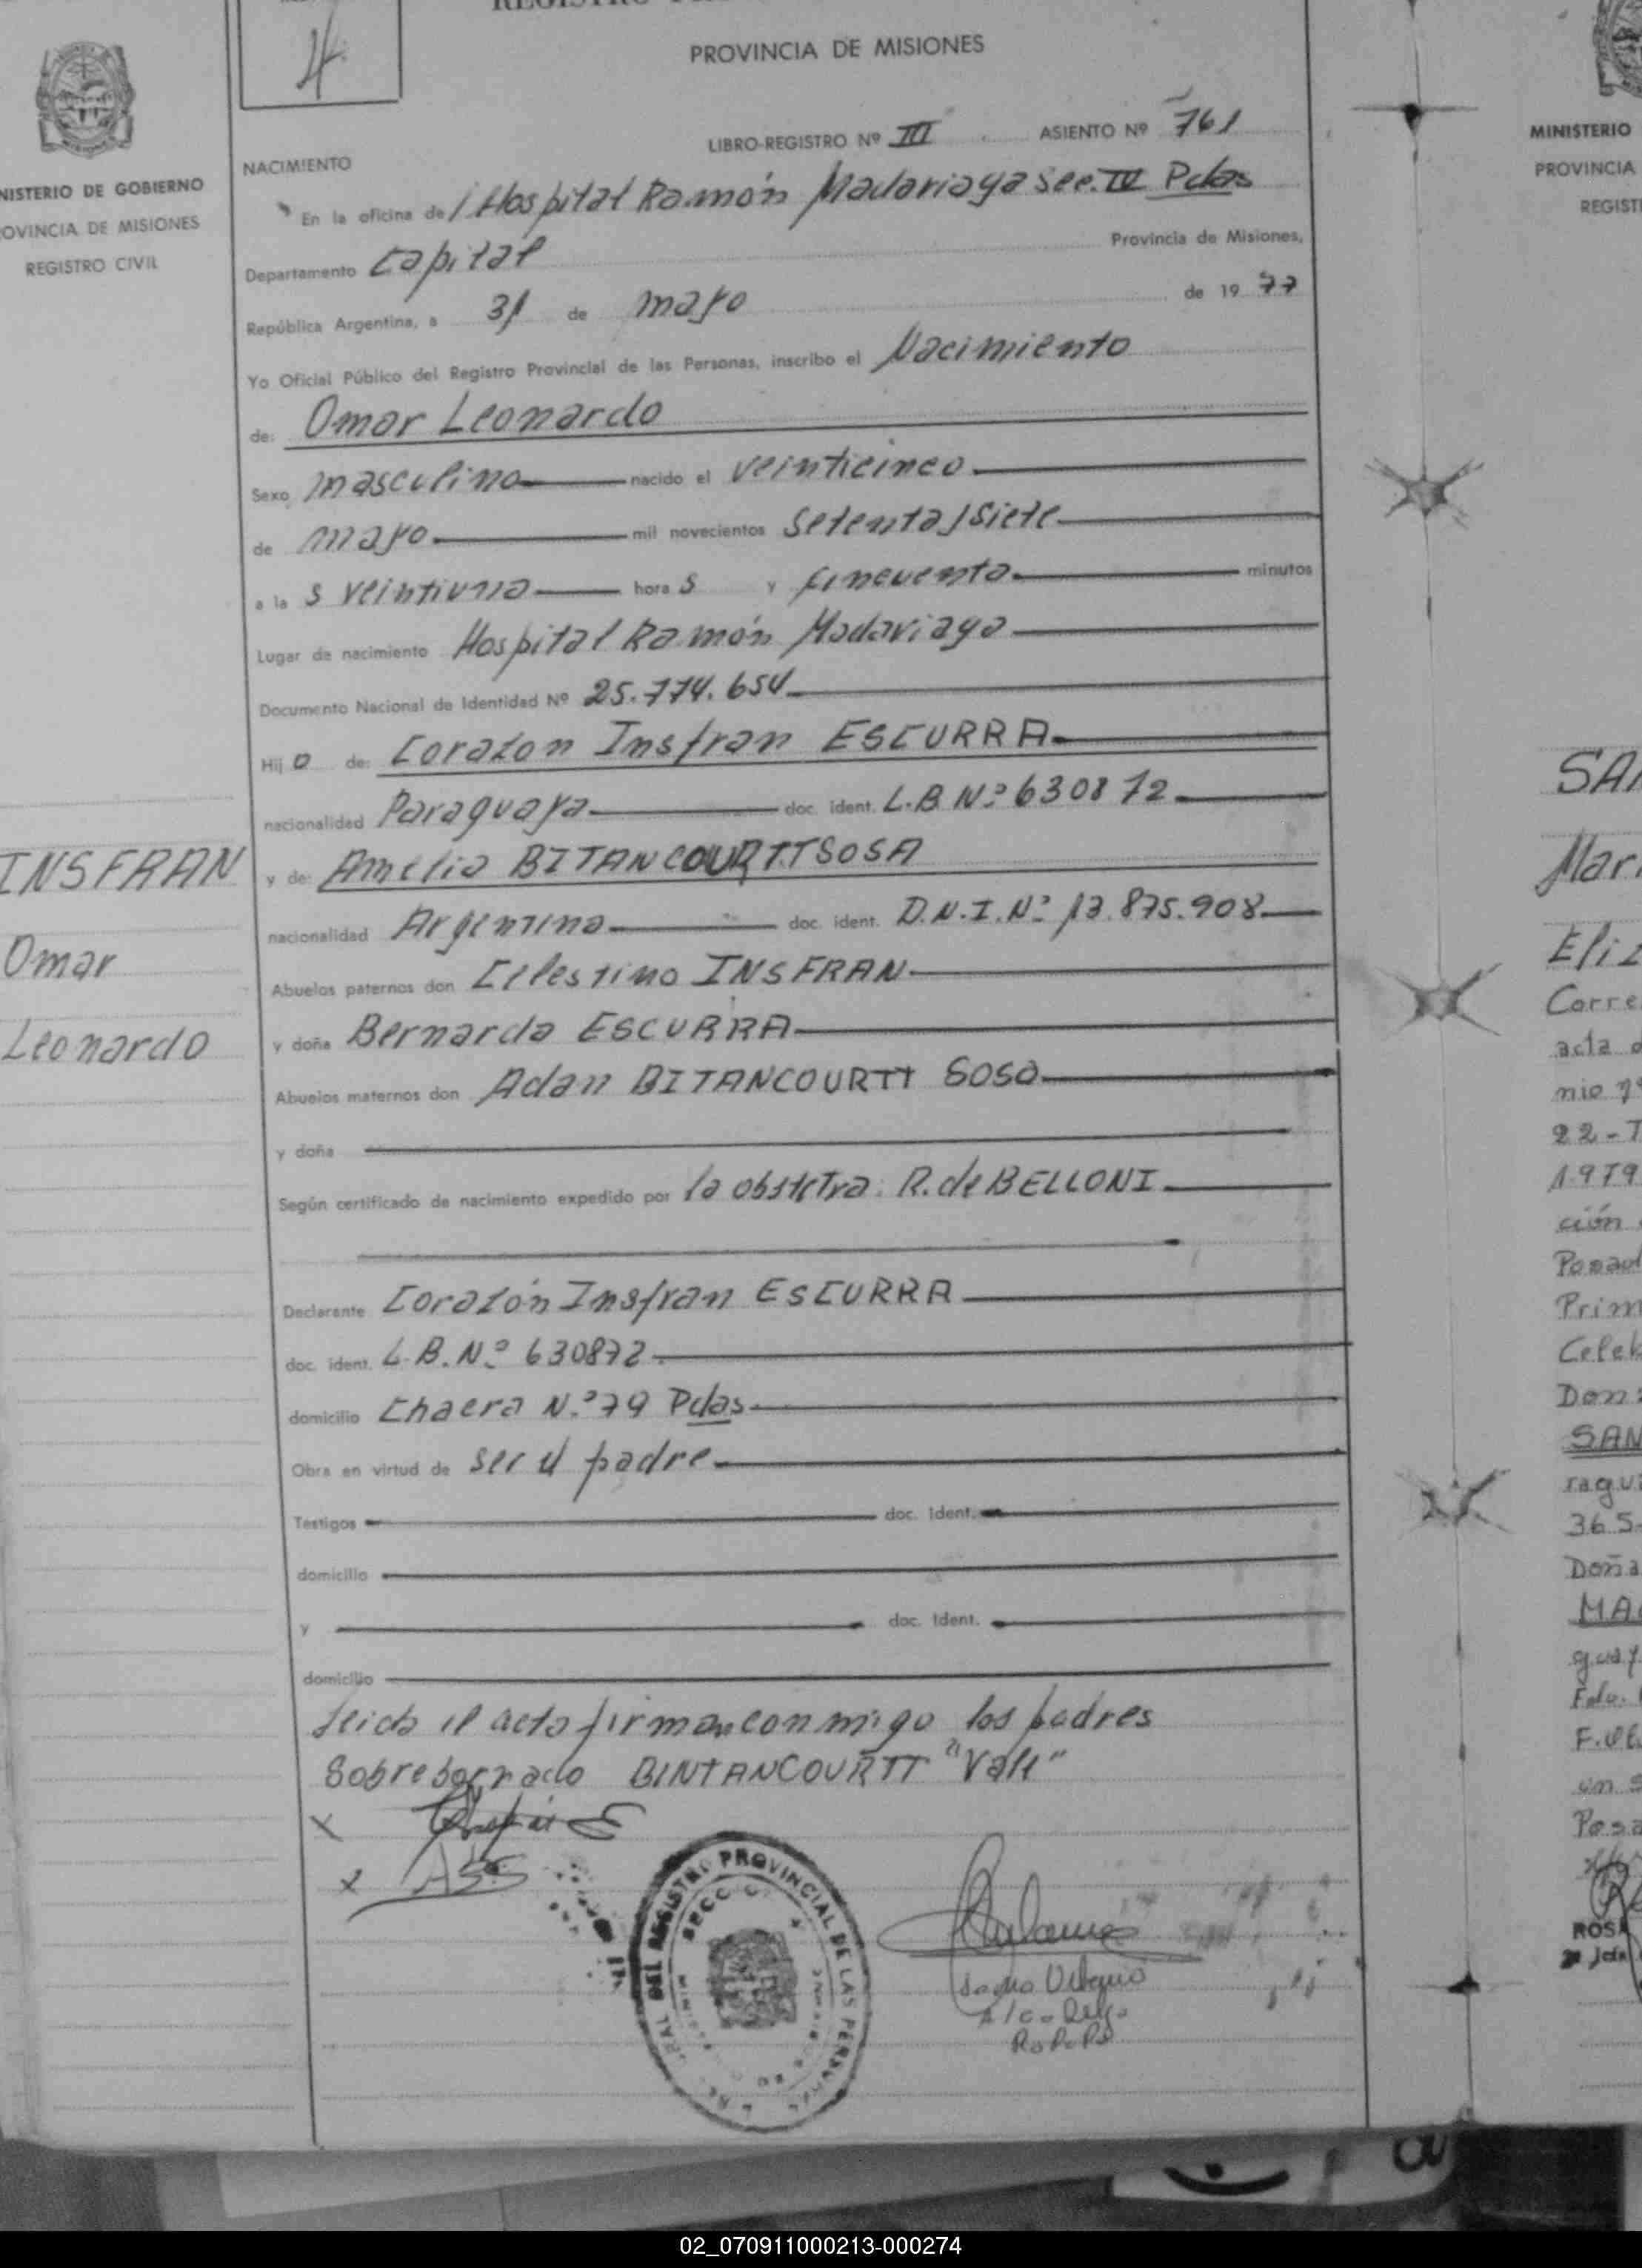 4
PROVINCIA DE MISIONES
LIBRO-REGISTRO Nº III ASIENTO Nº 761
NACIMIENTO
En la oficina del Hospital Ramón Madariaga Sec. IV Pdas
Departamento Capital Provincia de Misiones,
República Argentina, a 31 de mayo de 1977
Yo Oficial Público del Registro Provincial de las Personas, inscribo el Nacimiento
de: Omar Leonardo
Sexo masculino nacido el veinticinco
de mayo mil novecientos setenta y siete
a la s veintiuna hora s y cincuenta minutos
Lugar de nacimiento Hospital Ramón Madariaga
Documento Nacional de Identidad Nº 25.774.654
Hij o de: Corazon Insfran ESCURRA
nacionalidad Paraguaya doc. ident. L.B Nº 630872
y de: Amelia BITANCOURTT SOSA
nacionalidad Argentina doc. ident. D.N.I. Nº 13.875.908
Abuelos paternos don Celestino INSFRAN
y doña Bernarda ESCURRA
Abuelos maternos don Adan BITANCOURTT SOSA
y doña
Según certificado de nacimiento expedido por la obstetra: R. de BELLONI
Declarante Corazón Insfran ESCURRA
doc. ident. L.B. Nº 630872
domicilio Chacra N.º 79 Pdas
Obra en virtud de ser el padre
Testigos doc. ident.
domicilio
y doc. ident.
domicilio
Leida el acta firman conmigo los padres
Sobreborrado BINTANCOURTT "Vale"
X
X
DEL REGISTRO PROVINCIAL DE LAS PERSONAS
NISTERIO DE GOBIERNO
OVINCIA DE MISIONES
REGISTRO CIVIL
INSFRAN
Omar
Leonardo
MINISTERIO
PROVINCIA
REGIST
SAN
Mar
Eliz
Corre
acta d
nio nº
22-T
1979
ción
Posad
Prim
Celeb
Don
SAN
ragu
365-
Doña
MAR
guay
Fdo.
un S
Posa
ROSA
02_070911000213-000274